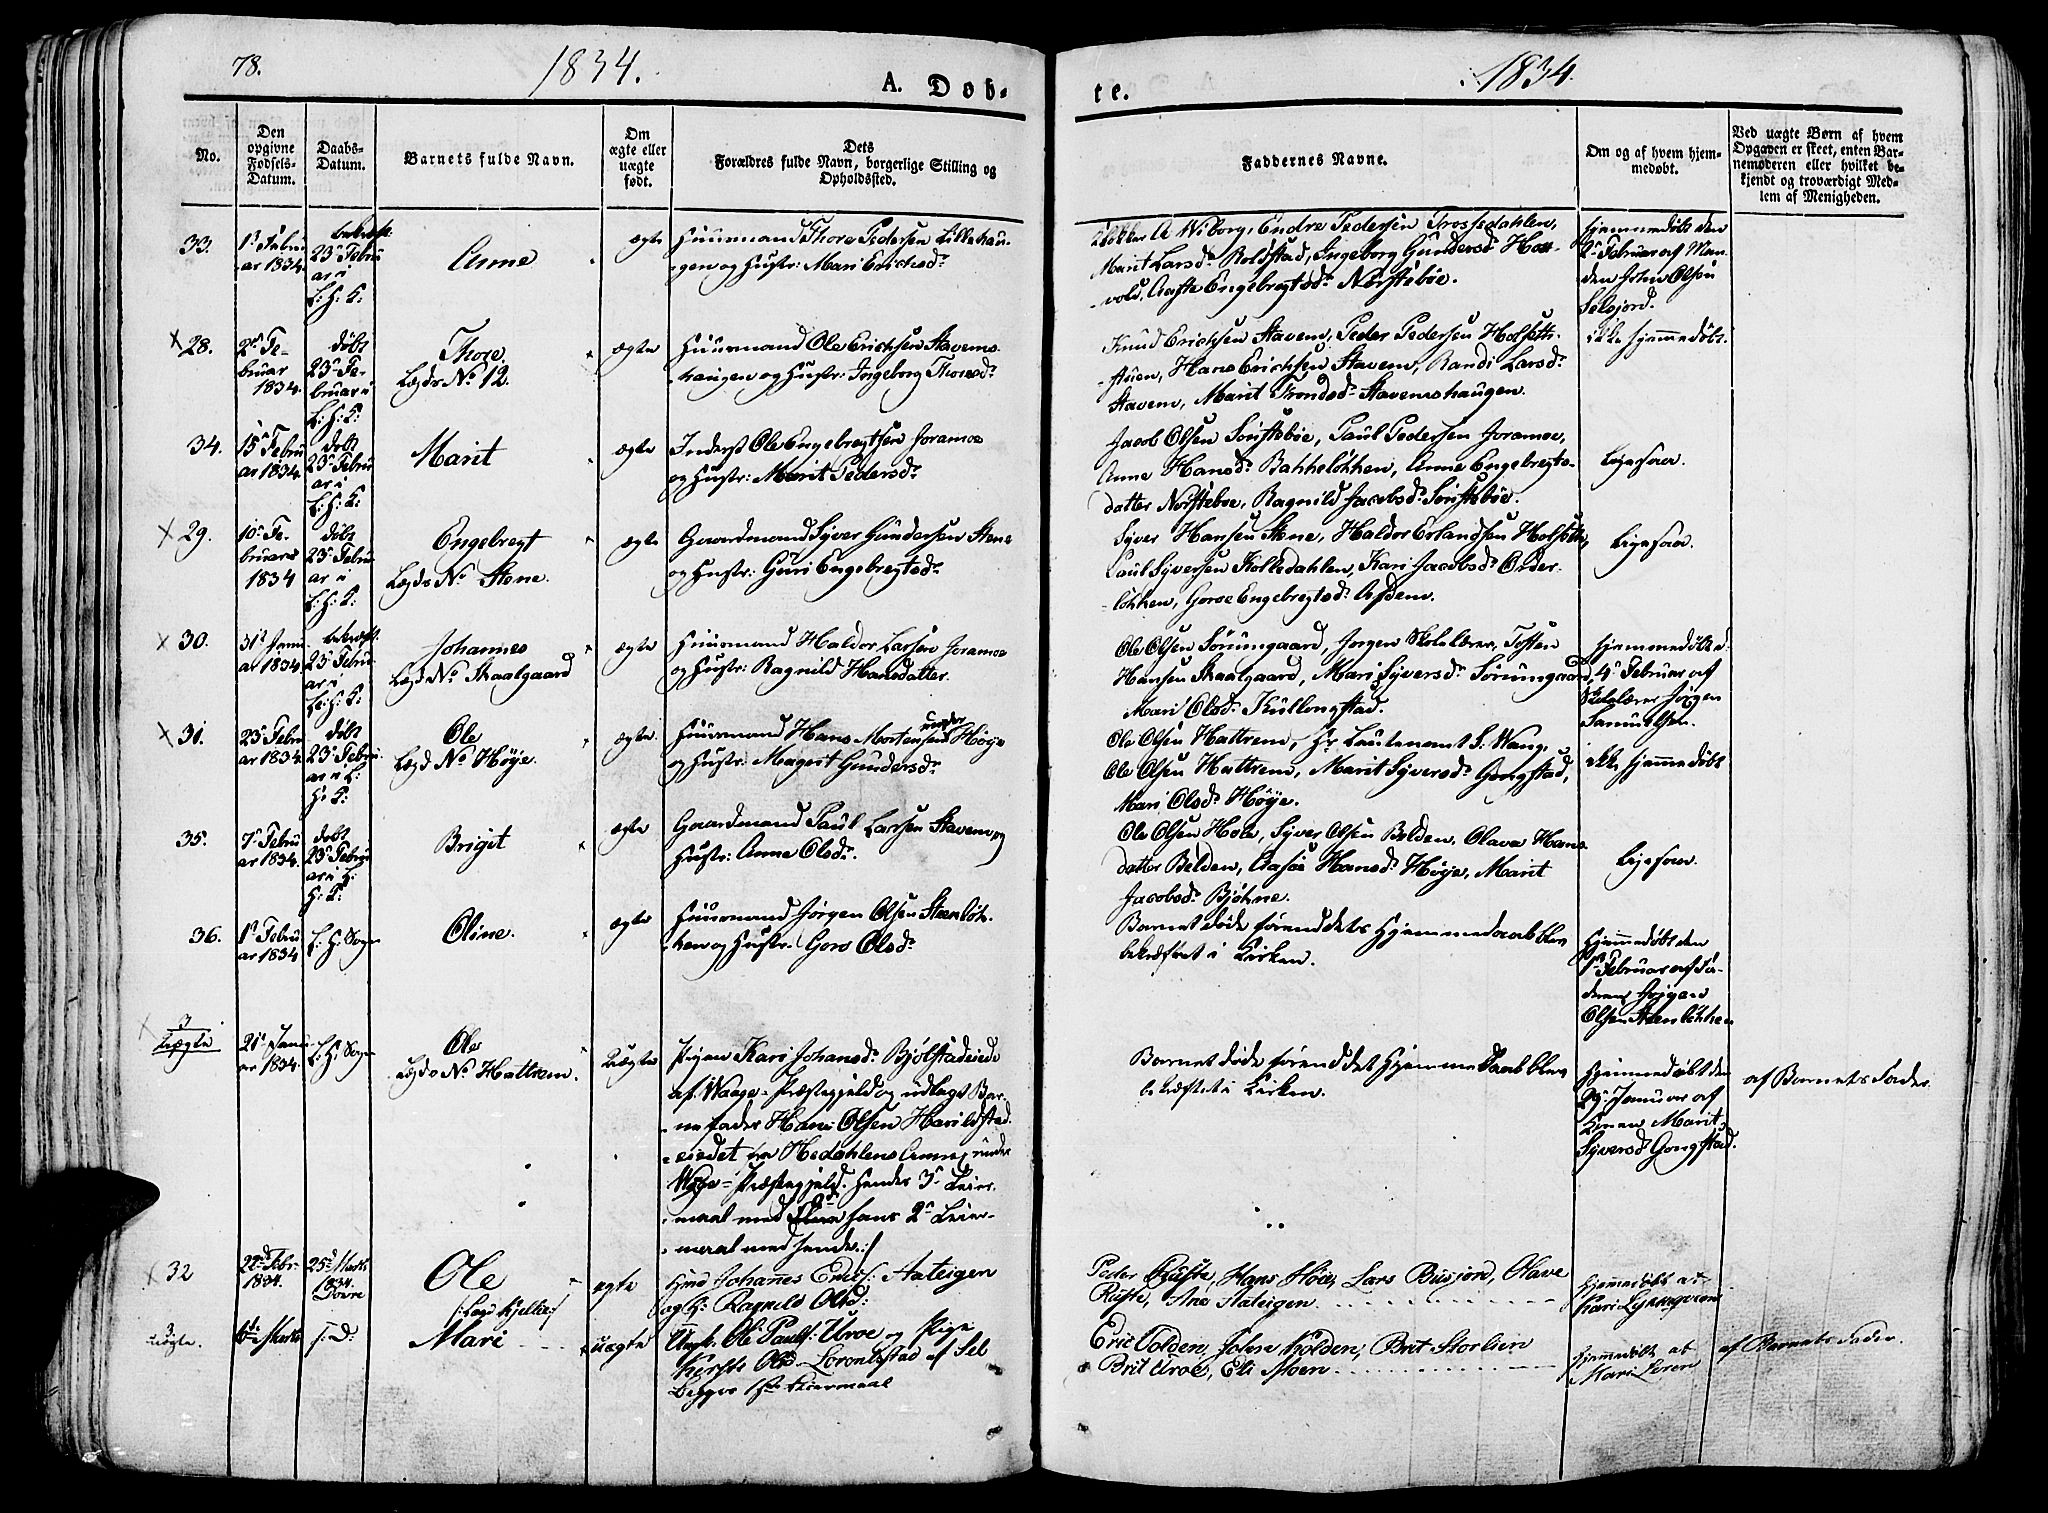 78.
1834.
A. Døb-
te.
1834.
No.
Den opgivne Fødsels-Datum.
Daabs-Datum.
Barnets fulde Navn.
Om ægte eller uægte født.
Dets Forældres fulde Navn, borgerlige Stilling og Opholdssted.
Faddernes Navne.
Om og af hvem hjemmedøbt.
Ved uægte Børn af hvem Opgaven er skeet, enten Barnemoderen eller hvilket bekjendt og troværdigt Medlem af Menigheden.
33.
1ste Febru
ar 1834.
bekræft.
23de Febru
ar i
L: H: K:
Anne
ægte
Huusmand Thore Pedersen Lillehau-
gen og Hustr: Mari Erichsdr
Klokker A Wiborg, Endre Pedersen Trossedahlen,
Marit Larsdr Roldstad, Ingeborg Gundersdr Hou-
vold, Aaste Engebregtsdr Nørstebøe.
Hjemmedøbt den
2den Februar af Man-
den John Olsen
Selsjord.
x 28.
2den Fe-
bruar
1834.
døbt
23de Fe-
bruar i
L: H: K:
Thore
Lægds No 12.
ægte
Huusmand Ole Erichsen Stavems-
haugen og Hustr: Ingeborg Thoresdr
Knud Erichsen Stavem, Peder Pedersen Holseth-
stuen, Hans Erichsen Stavem, Randi Larsdr
Stavem, Marit Trondsdr Stavemshaugen.
ikke hjemmedøbt.
34.
15de Febru
ar 1834.
døbt
23de Febru
ar i
L: H: K:
Marit
ægte
Inderst Ole Engebregtsen Joramoe
og Hustr: Marit Pedersdr
Jacob Olsen Sønstebøe, Paul Pedersen Joramoe,
Anne Hansdr Bakkeløkken, Anne Engebregts-
datter Nørstebøe, Ragnild Jacobsdr Sønstebøe.
Ligesaa.
x 29.
10de Fe-
bruar
1834
døbt
23de Febru
ar i
L: H: K:
Engebregt
Lægds No Stene.
ægte
Gaardmand Syver Gundersen Stene
og Hustr: Guri Engebregtsdr
Syver Hansen Stene, Haldor Erlandsen Holseth,
Paul Syversen Kolledahlen, Kari Jacobsdr Order-
løkken, Goroe Engebregtsdr Asdem.
Ligesaa.
x 30.
31te Janu
ar 1834.
bekræft.
23de Febru
ar i
L: H: K:
Johannes
Lægd No Skaalgaard
ægte
Huusmand Haldor Larsen Joramoe
og Hustr: Ragnild Hansdatter.
Ole Olsen Sørumgaard, Jørgen Skolelærer, Tosten
Hansen Skaalgaard, Mari Syversdr Sørumgaard,
Mari Olsdr Kullongstad.
Hjemmedøbt d:
4de Februar af
Skolelærer Jørgen
Samuelsen.
x 31.
23de Febru
ar 1834.
døbt
23de Febru
ar i L:
H: K:
Ole
Lægd No Høye.
ægte.
Huusmand Hans Mortensen under Høye
og Hustr: Magret Gundersdr
Ole Olsen Hattrem, Hr Lieutenant S. Wang,
Ole Olsen Hattrem, Marit Syversdr Gongstad,
Mari Olsdr Høye.
ikke hjemmedøbt
35.
7de Febru
ar 1834.
døbt
23de Febru
ar i L:
H: K:
Brigit
ægte
Gaardmand Paul Larsen Stavem og
Hustr: Anne Olsdr.
Ole Olsen Hole, Syver Olsen Belden, Olava Hans-
datter Belden, Aasøe Hansdr Høye, Marit
Jacobsdr Bjøhne.
Ligesaa.
36.
1ste Febru
ar 1834
L: H: Sogn
Oline.
ægte
Huusmand Jørgen Olsen Steenløk-
ken og Hustr: Goro Olsdr
Barnet døde førend dets Hjemmedaab blev
bekræftet i Kirken.
Hjemmedøbt den
1ste Februar af Fa-
deren Jørgen
Olsen Steenløkken
3
uægte
21de Janu
ar 1834.
L: H: Sogn
Ole
Lægds No Hattrem.
Uægte
Pigen Kari Johansdr Bjølstadeiede
af Waage Præstegjeld og udlagt Bar-
nefader Hans Olsen Harildstad-
eiedet fra Hedahlens Annex under
Wage-Præstegjeld. Hendes 3de Leier-
maal med hans 2det Leier-
maal med hende.
Barnet døde førend det Hjemmedaab blev
bekræftet i Kirken.
Hjemmedøbt den
Januar af
Konen Marit
Syversdr Gongstad.
af Barnets Fader
x 32
22de Febr
1834.
25de Marts
1834.
Dovre
Ole
/: Lægd Kjelke :/
ægte
Hmd Johanes Ericks: Aateigen
og H: Ragnild Olsd:
Peder Ruste, Hans Høie, Lars Busjord, Olave
Ruste, Ane Aateigen.
Hjemmedøbt af
Kari Lyngqveen
3
uægte.
6te Marts
s. D:
Mari
uægte
Ungk. Ole Pauls: Uroe og Pige
Kirsti Olsd Lorontsstad af Sel
Begges 1ste Leiermaal
Eric Tolden, John Kolden, Brit Storlien
Brit Uroe, Eli Moen
Hjemmedøbt af
Mari Loren
af Barnets Fader.